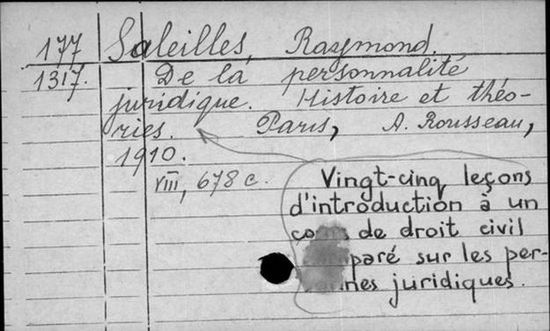 177 Saleilles, Raymond.
1317. De la personnalité
juridique. Histoire et théo-
ries. Paris, A. Rousseau,
1910.
VIII, 678 c.
Vingt-cinq leçons
d'introduction à un
de droit civil
sur les per-
juridiques.